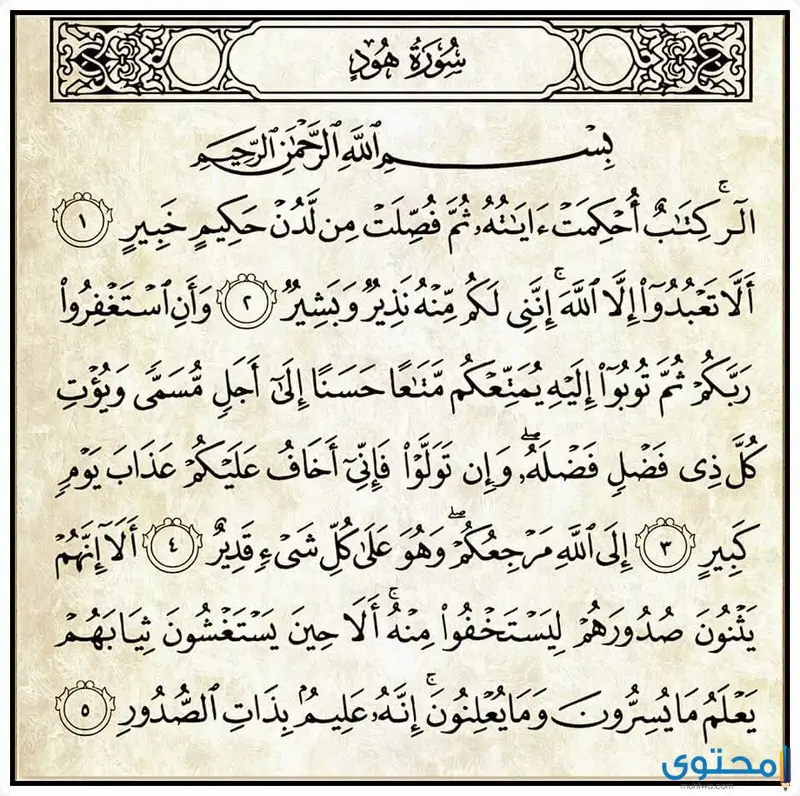 سُورَةُ هُودٍ
بِسْمِ اللَّهِ الرَّحْمَٰنِ الرَّحِيمِ
الٓرۚ كِتَٰبٌ أُحْكِمَتْ ءَايَٰتُهُۥ ثُمَّ فُصِّلَتْ مِن لَّدُنْ حَكِيمٍ خَبِيرٍ ١
أَلَّا تَعْبُدُوٓا۟ إِلَّا ٱللَّهَۚ إِنَّنِى لَكُم مِّنْهُ نَذِيرٌ وَبَشِيرٌ ٢ وَأَنِ ٱسْتَغْفِرُوا۟
رَبَّكُمْ ثُمَّ تُوبُوٓا۟ إِلَيْهِ يُمَتِّعْكُم مَّتَٰعًا حَسَنًا إِلَىٰٓ أَجَلٍ مُّسَمًّى وَيُؤْتِ
كُلَّ ذِى فَضْلٍ فَضْلَهُۥۖ وَإِن تَوَلَّوْا۟ فَإِنِّىٓ أَخَافُ عَلَيْكُمْ عَذَابَ يَوْمٍ
كَبِيرٍ ٣ إِلَى ٱللَّهِ مَرْجِعُكُمْۖ وَهُوَ عَلَىٰ كُلِّ شَىْءٍ قَدِيرٌ ٤ أَلَآ إِنَّهُمْ
يَثْنُونَ صُدُورَهُمْ لِيَسْتَخْفُوا۟ مِنْهُۚ أَلَا حِينَ يَسْتَغْشُونَ ثِيَابَهُمْ
يَعْلَمُ مَا يُسِرُّونَ وَمَا يُعْلِنُونَۚ إِنَّهُۥ عَلِيمٌۢ بِذَاتِ ٱلصُّدُورِ ٥
محتوى